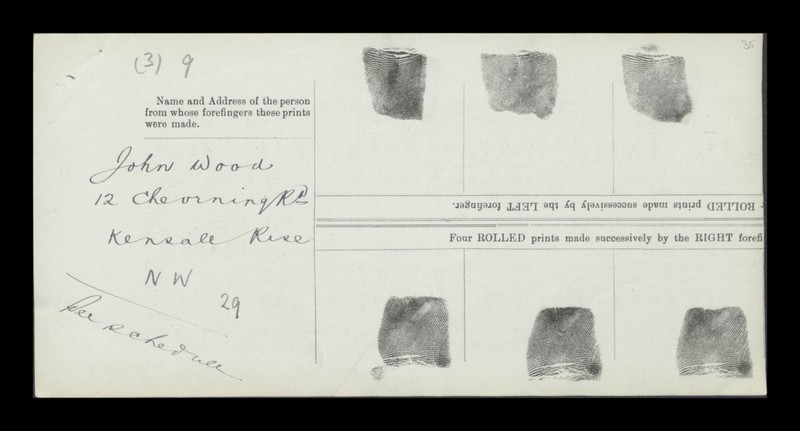 (3) 9
35
Name and Address of the person
from whose forefingers these prints
were made.
John Wood
12 Chevorning Rd
Kensall Rise
NW
29
See schedule
ROLLED prints made successively by the LEFT forefinger.
Four ROLLED prints made successively by the RIGHT forefi